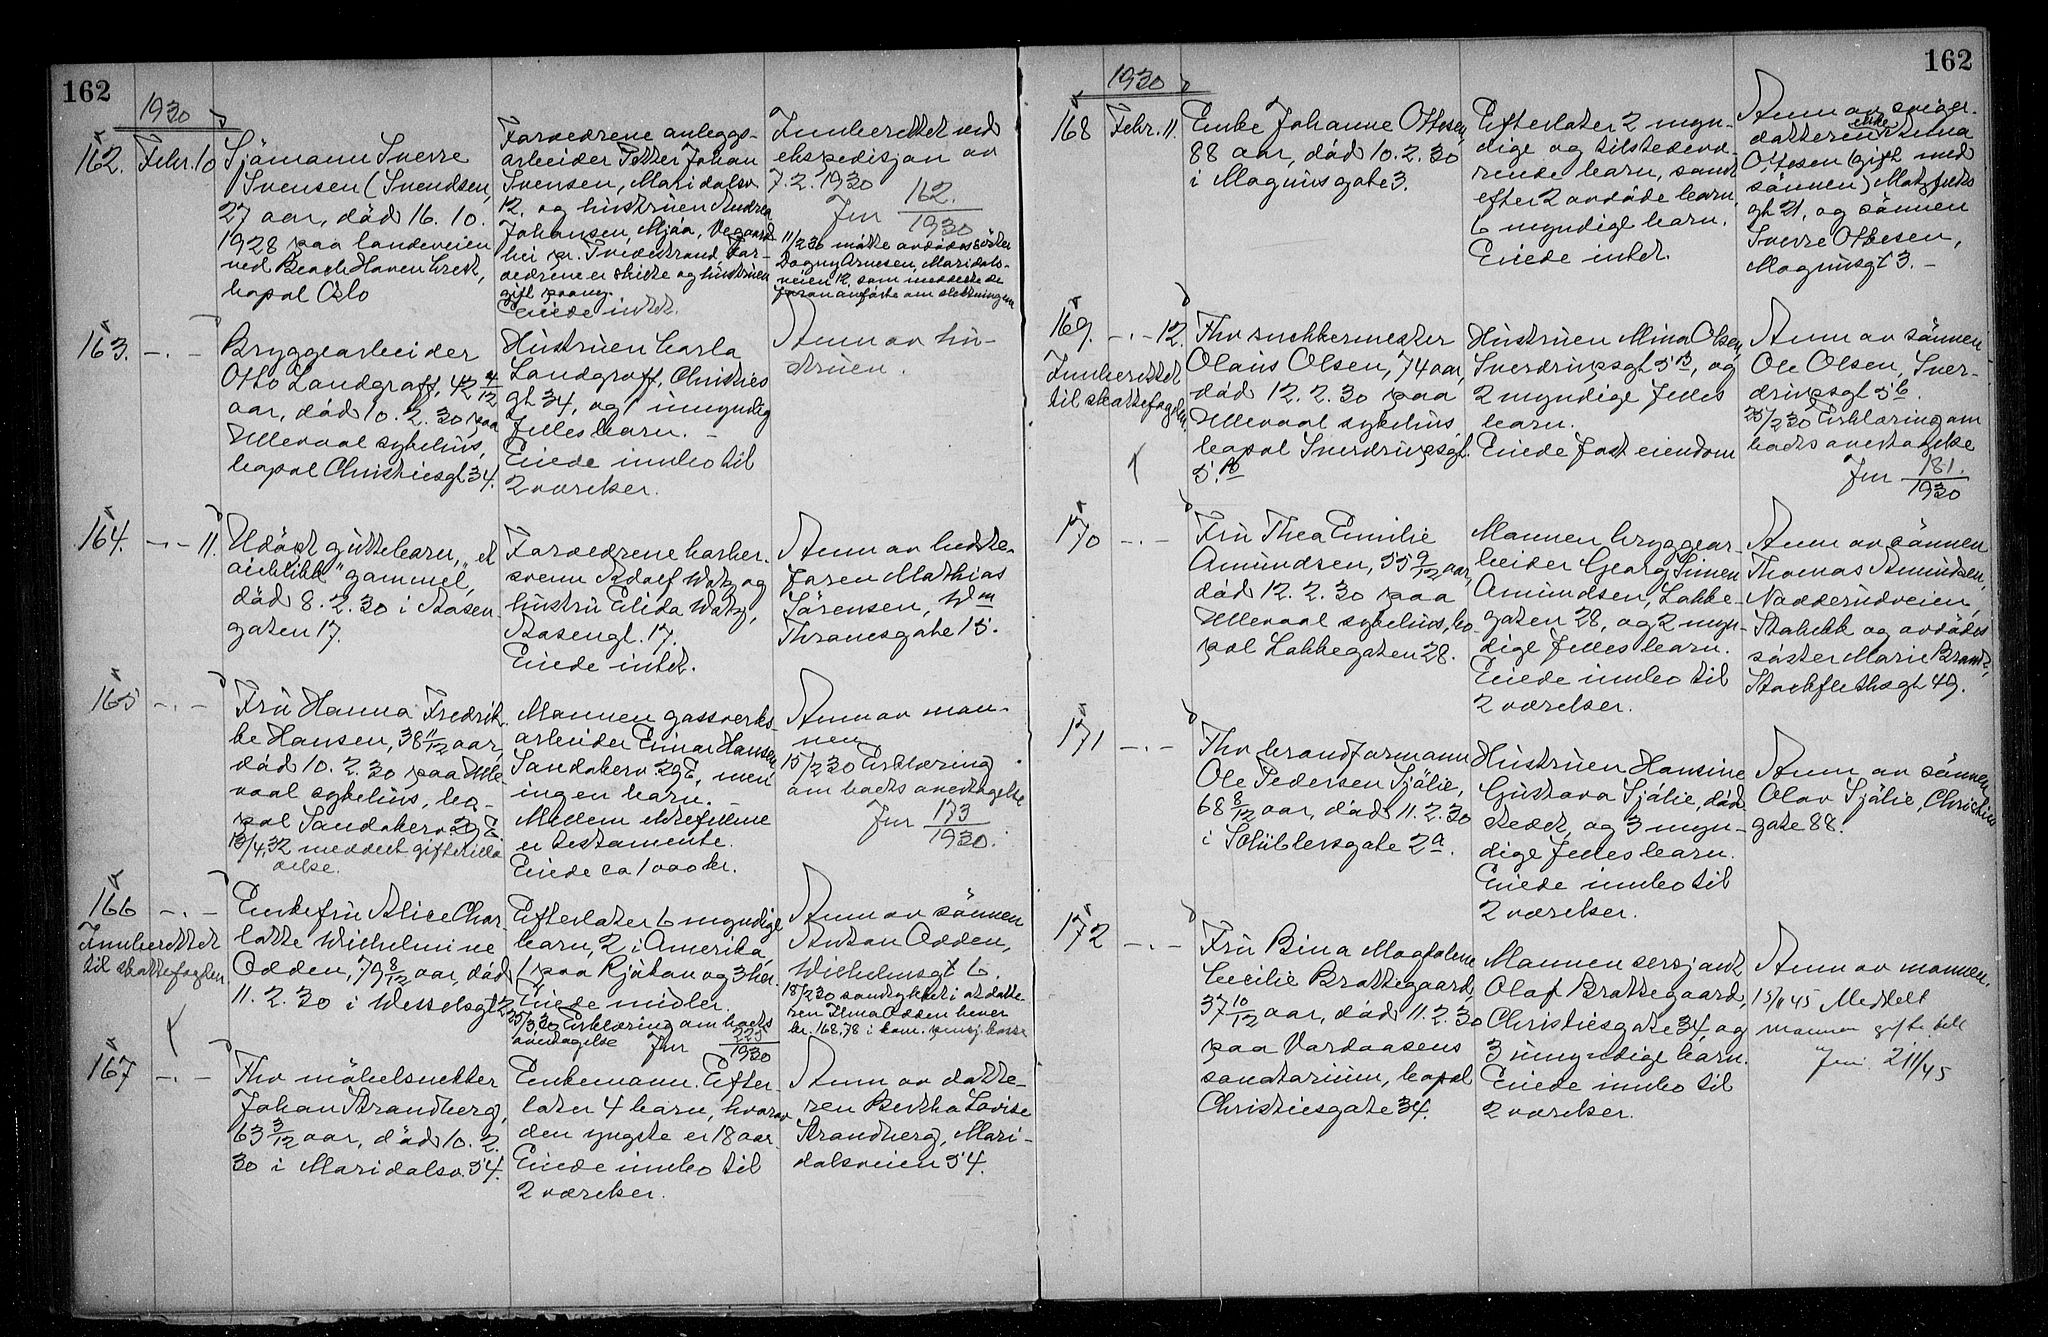 162
1930
162. Febr. 10
Sjømann Sverre
Svensen (Svendsen,
27 aar, död 16. 10.
1928 paa landeveien
ved Beach Haven Crest,
bopæl Oslo
Forældrene anleggs-
arbeider Petter Johan
Svensen, Maridalsv.
12. og hustruen Andrea
Johansen, Mjåa, Vegaard-
hei pr. Tvedestrand. For-
ældrene er skilte og hustruen
gift paany.
Eiede intet.
Innberettet ved
ekspedisjon av
7. 2. 1930
Jnr 162.
1930
11/2 30 møtte avdødes søster
Dagny Arnesen, Maridals-
veien 12, som meddelte de
foran anførte om slektningene
163. -.-
Bryggearbeider
Otto Landgraff, 42 4/12
aar, död 10. 2. 30 paa
Ullevaal sykehus,
bopæl Christiesgt 34.
Hustruen Carla
Landgraff, Christies
gt 34, og 1 umyndig
felles barn. -
Eiede innbo til
2 værelser.
Anm av hu-
struen.
164. -.- 11.
Udöpt guttebarn, "et
øieblikk" gammel,
död 8. 2. 30 i Aasen-
gaten 17.
Forældrene barber-
svenn Adolf Watz og
hustru Elida Watz,
Aasengt. 17.
Eiede intet.
Anm av beste-
faren Mathias
Sörensen, Wm
Thranesgate 15.
165 -.-
Fru Hanna Fredrik-
ke Hansen, 38 11/12 aar,
död 10. 2. 30 paa Ulle-
vaal sykehus, bo-
pæl Sandakerv. 29 E.
13/4.32 meddelt gifterillo
velse.
Mannen gassverks-
arbeider Einar Hansen
Sandakerv. 29 E, men
ingen barn. -
Mellem ektefellene
er testamente.
Eiede ca 1000 kr.
Anm av man-
nen
15/2 30 Erklæring
om boets overtagelse
Jnr 173
1930.
166 -.-
Innberettet
til skattefogden
Enkefru Alice Char-
lotte Wilhelmine
Odden, 79 8/12 aar, död
11. 2. 30 i Wesselsgt 2
Efterlater 6 myndige
barn, 2 i Amerika,
1 paa Rjukan og 3 her.
Eiede midler.
25/3.30 Erklæring om boets
overtagelse Jnr 225
1930
Anm av sönnen
Anton Odden,
Wilhelmsgt 6.
18/2 30 samtykket i at datte-
ren Alma Odden hever
kr. 168,78 i kom. pensj. kasse
167 -.-
Fhv möbelsnekker
Johan Strandberg,
63 3/12 aar, död 10. 2.
30 i Maridalsv. 54.
Enkemann. Efter-
later 4 barn, hvorav
den yngste er 18 aar.
Eiede innbo til
2 værelser.
Anm av datte-
ren Bertha Lovise
Strandberg, Mari-
dalsveien 54.
162
1930
168 Febr. 11.
Enke Johanne Ottesen,
88 aar, död 10. 2. 30
i Magnusgate 3.
Efterlater 2 myn-
dige og tilstedevæ-
rende barn, samt
efter 2 avdöde barn
6 myndige barn.
Eiede intet.
Anm av sviger-
datteren enke Anna
Ottesen (gift med
sönnen) Matzfeldts
gt 21, og sönnen
Sverre Ottesen,
Magnusgt 3. -
169. -.- 12.
Innberettet
til skattefogden.
Fhv snekkermester
Olaus Olsen, 74 aar,
död 12. 2. 30 paa
Ullevaal sykehus,
bopæl Sverdrupsgt.
5 B
Hustruen Mina Olsen
Sverdrupsgt 5 B, og
2 myndige felles
barn.
Eiede fast eiendom
Anm av sönnen
Ole Olsen, Sver-
drupsgt 5 b.
25/2 30 Erklæring om
boets overtagelse
Jnr 181.
1930
170 -.-
Fru Thea Emilie
Amundsen, 55 9/12 aar,
död 12. 2. 30 paa
Ullevaal sykehus, bo-
pæl Lakkegaten 28.
Mannen bryggear-
beider Georg Simen
Amundsen, Lakke-
gaten 28, og 2 myn-
dige felles barn.
Eiede innbo til
2 værelser.
Anm av sönnen
Thomas Amundsen,
Nadderudveien,
Stabekk og avdödes
söster Marie Brandt,
Stockflethsgt 49.
171 -.-
Fhv brandformann
Ole Pedersen Sjölie,
68 8/12 aar, död 11. 2. 30
i Schüblersgate 2 a.
Hustruen Hansine
Gustava Sjölie, död-
stedet, og 3 myn-
dige felles barn.
Eiede innbo til
2 værelser.
Anm av sönnen
Olav Sjölie, Christies
gate 88.
172 -.-
Fru Bina Magdalene
Cecilie Brattegaard,
37 10/12 aar, död 11. 2. 30
paa Vardaasens
sanatorium, bopæl
Christiesgate 34.
Mannen sersjant
Olaf Brattegaard,
Christiesgate 34, og
3 umyndige barn.
Eiede innbo til
2 værelser.
Anm av mannen.
15/1 45 Meddelt
mannen gifte till
Jnr 211/45